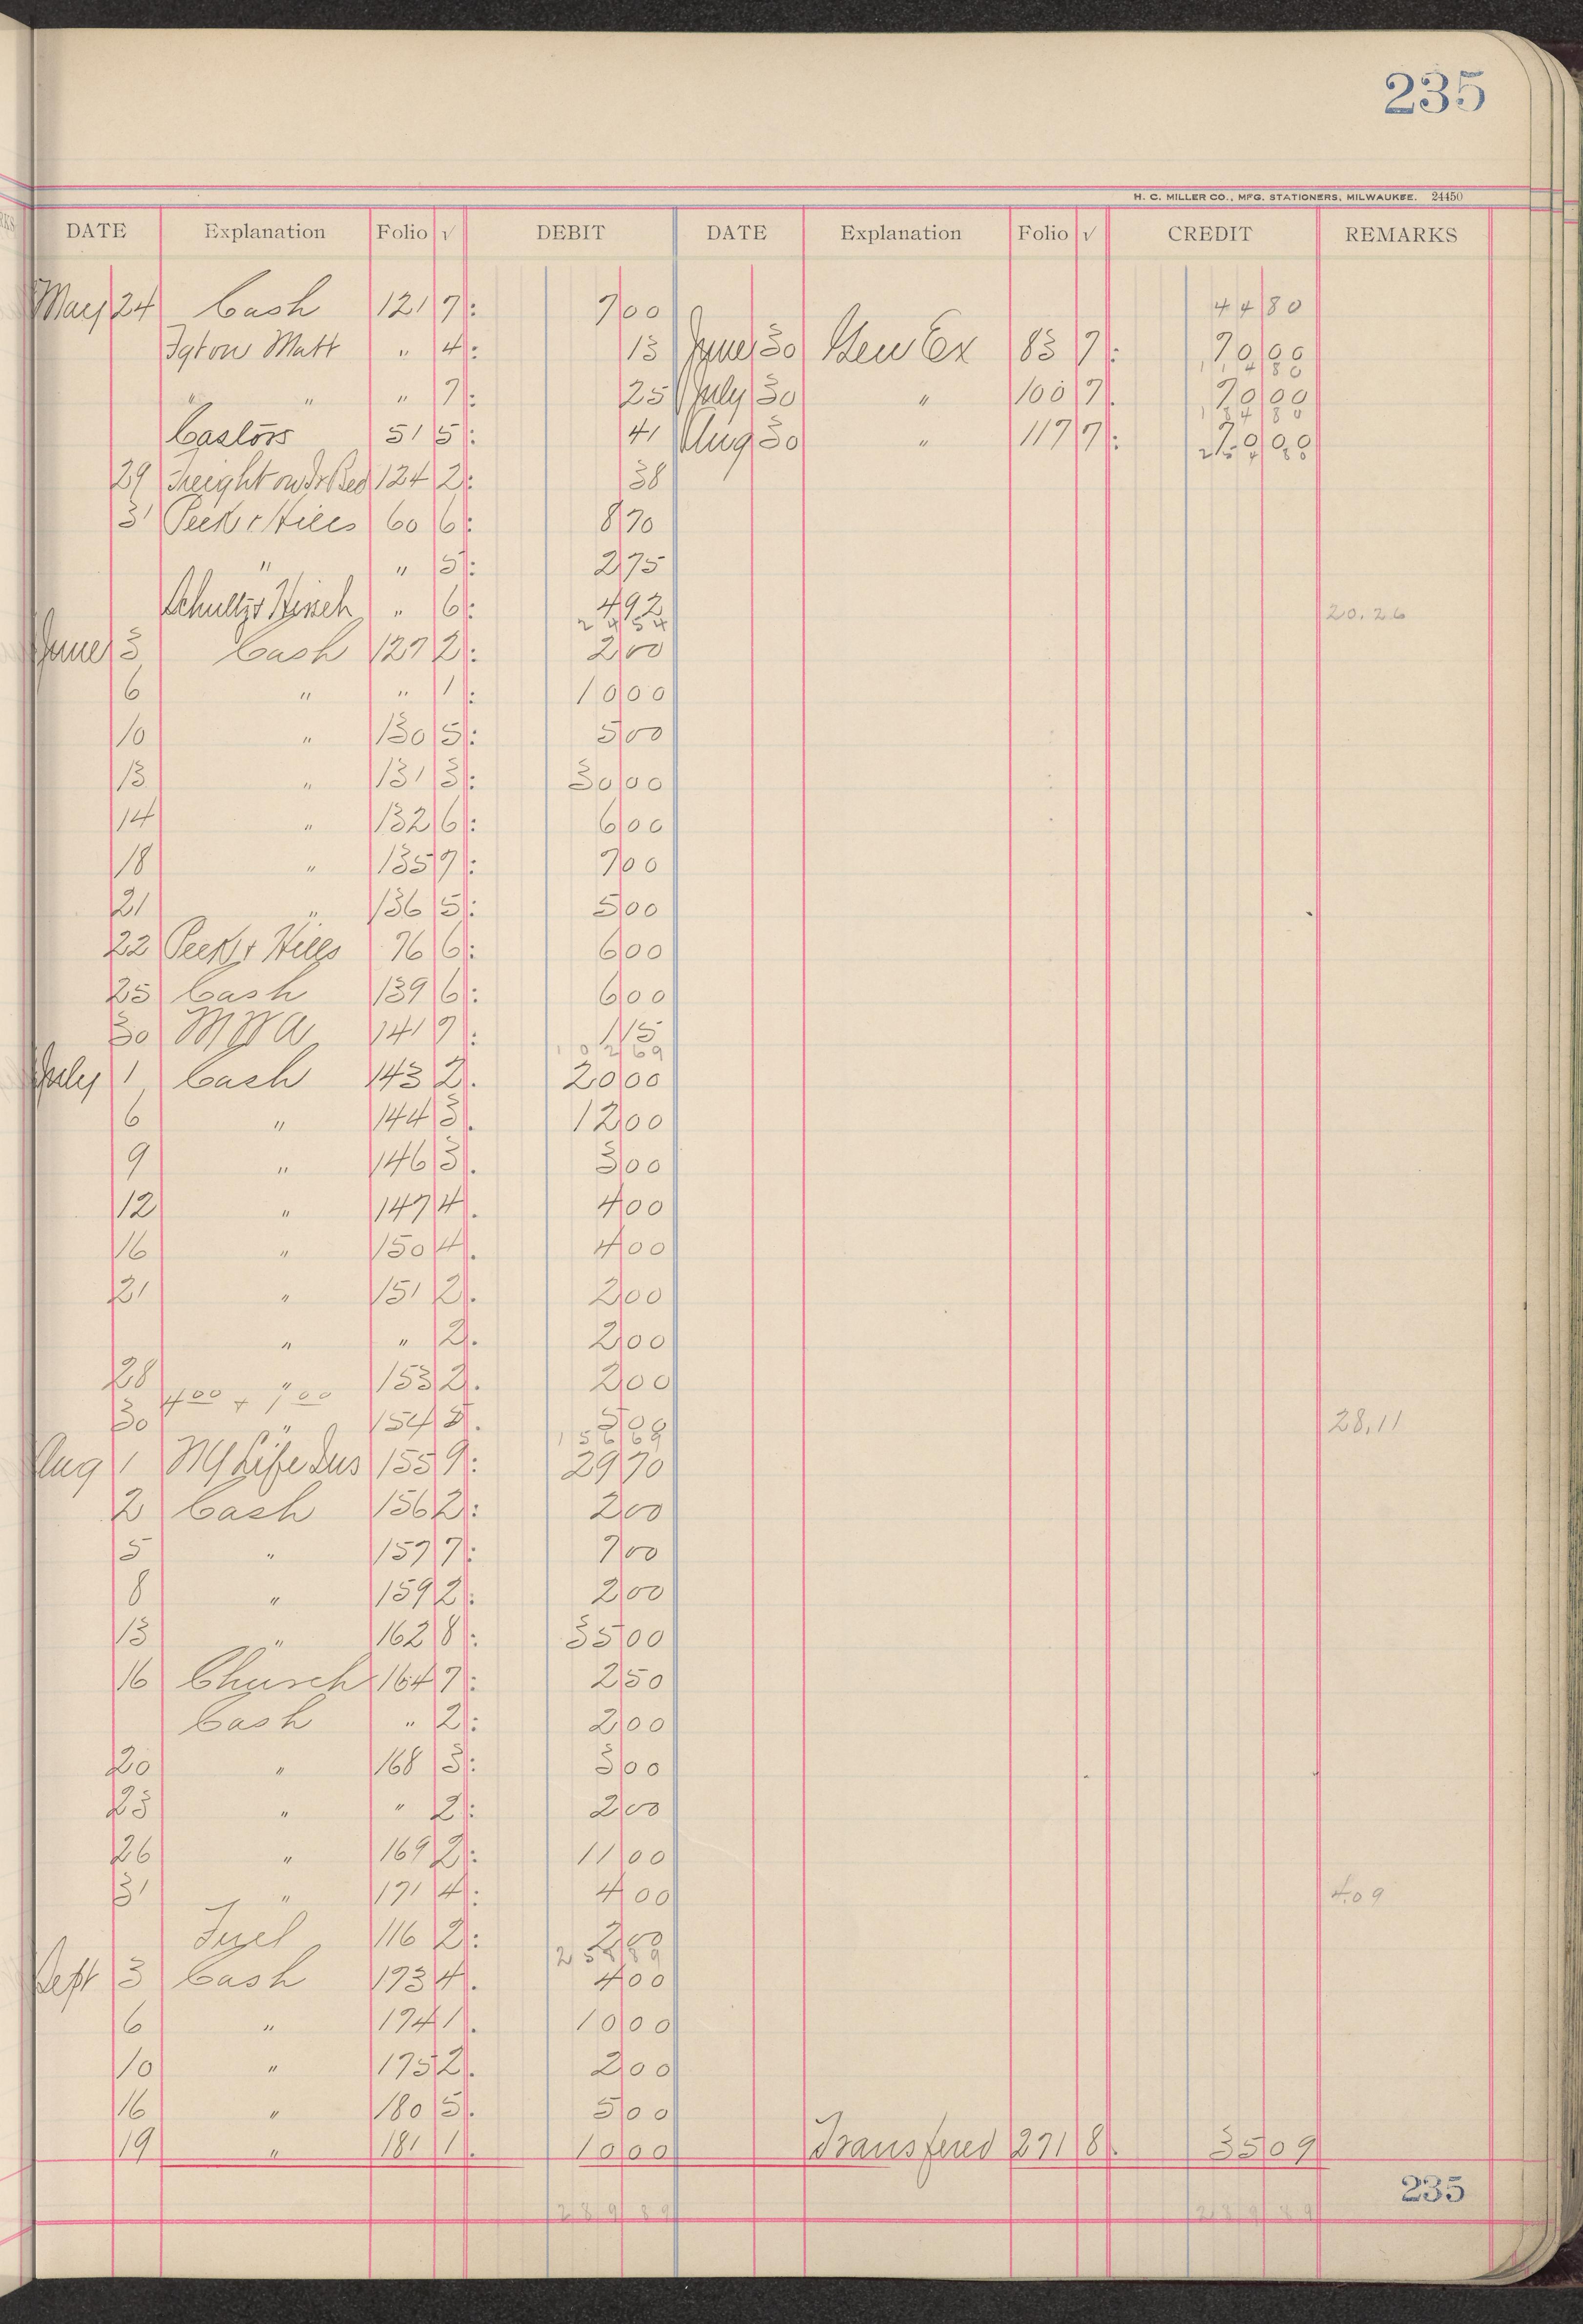 235
H. C. MILLER CO., MFG. STATIONERS, MILWAUKEE. 24450
DATE Explanation Folio √ DEBIT DATE Explanation Folio √ CREDIT REMARKS
May 24 Cash 121 7: 7 00 44 80
Igton Matt " 4: 13 June 30 Gen Ex 83 7: 70 00
" " " 7: 25 July 30 " 100 7. 70 00
Castors 51 5: 41 Aug 30 " 117 7:
29 Freight on Bed 124 2: 38
31 Peek & Hills 60 6: 8 70
" " 5: 2 75
" 6: 4 92 20.26
24 54
June 3 Cash 127 2: 2 00
6 " " 1: 10 00
10 " 130 5: 5 00
13 " 131 3: 30 00
14 " 132 6: 6 00
18 " 135 7: 7 00
21 " 136 5: 5 00
22 Peek & Hills 76 6: 6 00
25 Cash 139 6: 6 00
30 M W A 141 7: 1 15
102 69
July 1 Cash 143 2. 20 00
6 " 144 3. 12 00
9 " 146 3. 3 00
12 " 147 4. 4 00
16 " 150 4. 4 00
21 " 151 2. 2 00
" " 2. 2 00
28 " 153 2. 2 00
4 00 + 1 00
30 " 154 5. 5 00 28.11
156 69
Aug 1 NY Life Ins 155 9: 29 70
2 Cash 156 2: 2 00
5 " 157 7: 7 00
8 " 159 2: 2 00
13 " 162 8: 35 00
16 Church 164 7: 2 50
Cash " 2: 2 00
20 " 168 3: 3 00
23 " " 2: 2 00
26 " 169 2: 11 00
31 " 171 4: 4 00 4.09
Fuel 116 2: 2 00
Sept 3 Cash 173 4. 4 00
6 " 174 1. 10 00
10 " 175 2. 2 00
16 " 180 5. 5 00
19 " 181 1. 10 00 Transfered 271 8. 35 09
289 89 289 89
235